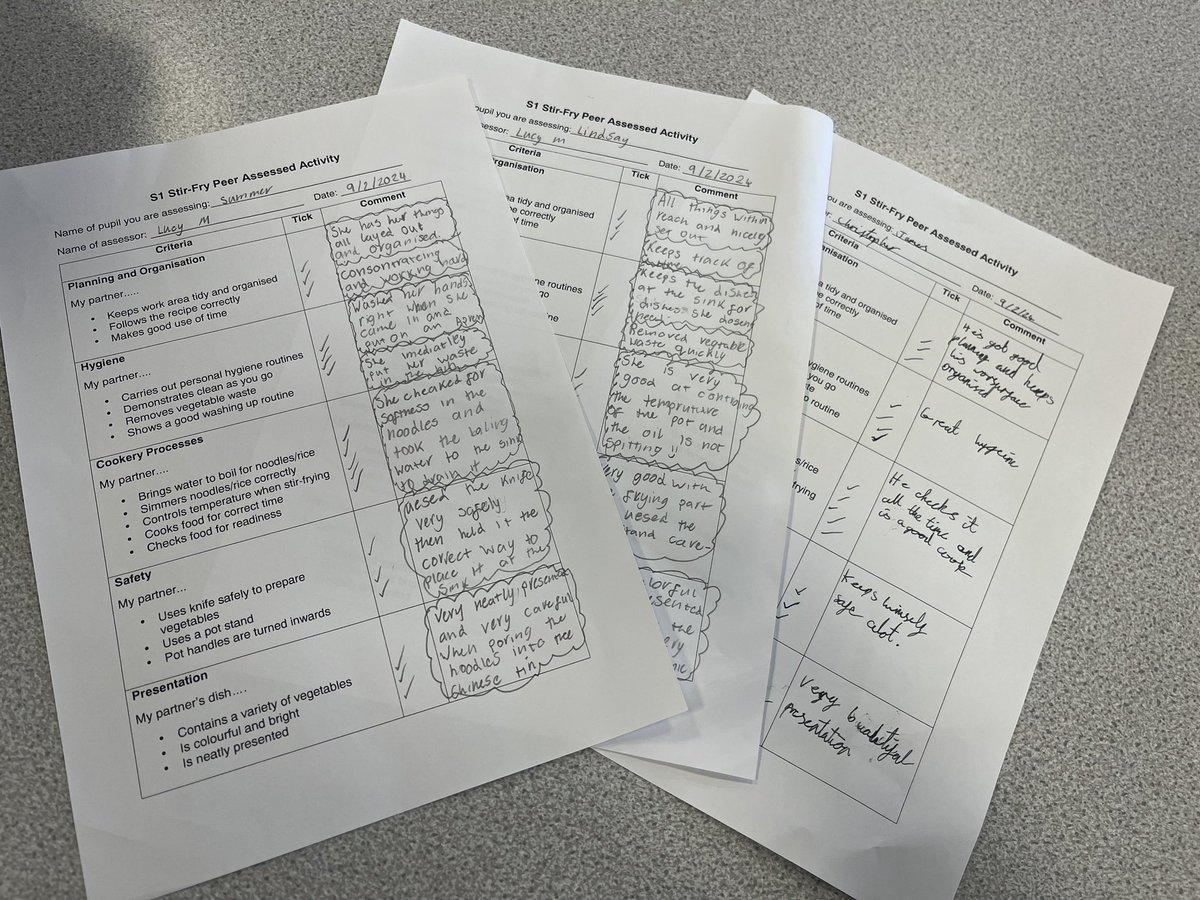 S1 Stir-Fry Peer Assessed Activity
Name of pupil you are assessing: Summer
Name of assessor: Lucy M Date: 9/2/2024
Criteria Tick Comment
Planning and Organisation
My partner.....
• Keeps work area tidy and organised
• Follows the recipe correctly
• Makes good use of time
She has her things
all layed out
and organised.
consontrating
and working hard
Hygiene
My partner....
• Carries out personal hygiene routines
• Demonstrates clean as you go
• Removes vegetable waste
• Shows a good washing up routine
Washed her hands
right when she
came in and
on an
She imediatley
put her waste
in the bin
Cookery Processes
My partner....
• Brings water to boil for noodles/rice
• Simmers noodles/rice correctly
• Controls temperature when stir-frying
• Cooks food for correct time
• Checks food for readiness
She cheaked for
softness in the
noodles and
took the
water to the sink
to drain it
Safety
My partner...
• Uses knife safely to prepare
vegetables
• Uses a pot stand
• Pot handles are turned inwards
uesed the knife
very safely
then held it the
correct way to
place it at the
sink
Presentation
My partner's dish....
• Contains a variety of vegetables
• Is colourful and bright
• Is neatly presented
very neatly presented
and very careful
when poring the
noodles into the
Chinese tin
S1 Stir-Fry Peer Assessed Activity
pupil you are assessing: Lindsay
sessor: Lucy M Date: 9/2/2024
Criteria Tick Comment
rganisation
a tidy and organised
e correctly
of time
All things within
reach and nicely
set out
Keeps track of
ne routines
go
Keeps the dishes
at the sink for
dishes she dosen
Removed vegtable
waste quickly
She is very
good at
the tempruture
of the pot and
the oil is not
spitting!!
ery good with
frying part
uesed the
tand care-
lorful
esented
the
ery
S1 Stir-Fry Peer Assessed Activity
assessing: James
Christopher Date: 9/2/24
Criteria Tick Comment
ganisation
a tidy and organised
correctly
time
He's got good
planning and keeps
his worksurface
organised
ygiene routines
you go
o routine
Great hygeine
s/rice
frying
He checks it
all the time and
is a good cook
Keeps himself
safe alot.
Very
presentation.